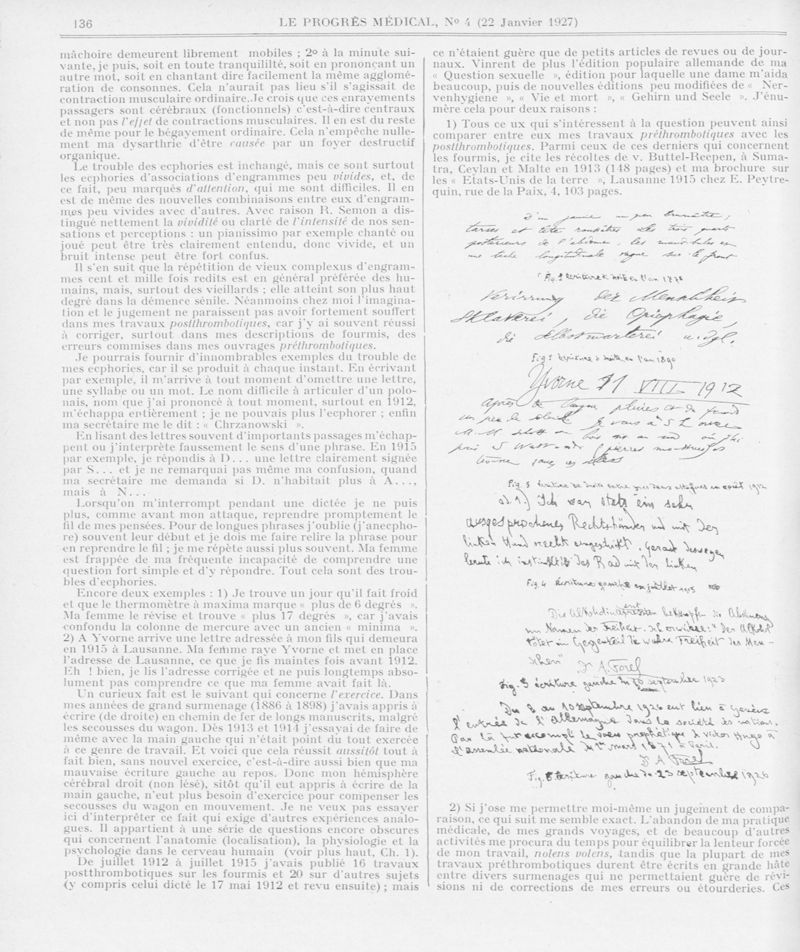 136
LE PROGRÈS MÉDICAL, No 4 (22 Janvier 1927)
mâchoire demeurent librement mobiles ; 2o à la minute sui-
vante, je puis, soit en toute tranquillité, soit en prononçant un
autre mot, soit en chantant dire facilement la même agglomé-
ration de consonnes. Cela n'aurait pas lieu s'il s'agissait de
contraction musculaire ordinaire. Je crois que ces enrayements
passagers sont cérébraux (fonctionnels) c'est-à-dire centraux
et non pas l'effet de contractions musculaires. Il en est du reste
de même pour le bégayement ordinaire. Cela n'empêche nulle-
ment ma dysarthrie d'être causée par un foyer destructif
organique.
Le trouble des ecphories est inchangé, mais ce sont surtout
les ecphories d'associations d'engrammes peu vivides, et, de
ce fait, peu marqués d'attention, qui me sont difficiles. Il en
est de même des nouvelles combinaisons entre eux d'engram-
mes peu vivides avec d'autres. Avec raison R. Semon a dis-
tingué nettement la vividité ou clarté de l'intensité de nos sen-
sations et perceptions : un pianissimo par exemple chanté ou
joué peut être très clairement entendu, donc vivide, et un
bruit intense peut être fort confus.
Il s'en suit que la répétition de vieux complexus d'engram-
mes cent et mille fois redits est en général préférée des hu-
mains, mais, surtout des vieillards ; elle atteint son plus haut
degré dans la démence sénile. Néanmoins chez moi l'imagina-
tion et le jugement ne paraissent pas avoir fortement souffert
dans mes travaux postthrombotiques, car j'y ai souvent réussi
à corriger, surtout dans mes descriptions de fourmis, des
erreurs commises dans mes ouvrages préthrombotiques.
Je pourrais fournir d'innombrables exemples du trouble de
mes ecphories, car il se produit à chaque instant. En écrivant
par exemple, il m'arrive à tout moment d'omettre une lettre,
une syllabe ou un mot. Le nom difficile à articuler d'un polo-
nais, nom que j'ai prononcé à tout moment, surtout en 1912,
m'échappa entièrement ; je ne pouvais plus l'ecphorer ; enfin
ma secrétaire me le dit : « Chrzanowski ».
En lisant des lettres souvent d'importants passages m'échap-
pent ou j'interprète faussement le sens d'une phrase. En 1915
par exemple, je répondis à D... une lettre clairement signée
par S... et je ne remarquai pas même ma confusion, quand
ma secrétaire me demanda si D. n'habitait plus à A...,
mais à N...
Lorsqu'on m'interrompt pendant une dictée je ne puis
plus, comme avant mon attaque, reprendre promptement le
fil de mes pensées. Pour de longues phrases j'oublie (j'anecpho-
re) souvent leur début et je dois me faire relire la phrase pour
en reprendre le fil ; je me répète aussi plus souvent. Ma femme
est frappée de ma fréquente incapacité de comprendre une
question fort simple et d'y répondre. Tout cela sont des trou-
bles d'ecphories.
Encore deux exemples : 1) Je trouve un jour qu'il fait froid
et que le thermomètre à maxima marque « plus de 6 degrés ».
Ma femme le révise et trouve « plus 17 degrés », car j'avais
confondu la colonne de mercure avec un ancien « minima ».
2) A Yvorne arrive une lettre adressée à mon fils qui demeura
en 1915 à Lausanne. Ma femme raye Yvorne et met en place
l'adresse de Lausanne, ce que je fis maintes fois avant 1912.
Eh ! bien, je lis l'adresse corrigée et ne puis longtemps abso-
lument pas comprendre ce que ma femme avait fait là.
Un curieux fait est le suivant qui concerne l'exercice. Dans
mes années de grand surmenage (1886 à 1898) j'avais appris à
écrire (de droite) en chemin de fer de longs manuscrits, malgré
les secousses du wagon. Dès 1913 et 1914 j'essayai de faire de
même avec la main gauche qui n'était point du tout exercée
à ce genre de travail. Et voici que cela réussit aussitôt tout à
fait bien, sans nouvel exercice, c'est-à-dire aussi bien que ma
mauvaise écriture gauche au repos. Donc mon hémisphère
cérébral droit (non lésé), sitôt qu'il eut appris à écrire de la
main gauche, n'eut plus besoin d'exercice pour compenser les
secousses du wagon en mouvement. Je ne veux pas essayer
ici d'interpréter ce fait qui exige d'autres expériences analo-
gues. Il appartient à une série de questions encore obscures
qui concernent l'anatomie (localisation), la physiologie et la
psychologie dans le cerveau humain (voir plus haut, Ch. 1).
De juillet 1912 à juillet 1915 j'avais publié 16 travaux
postthrombotiques sur les fourmis et 20 sur d'autres sujets
(y compris celui dicté le 17 mai 1912 et revu ensuite) ; mais
ce n'étaient guère que de petits articles de revues ou de jour-
naux. Vinrent de plus l'édition populaire allemande de ma
« Question sexuelle », édition pour laquelle une dame m'aida
beaucoup, puis de nouvelles éditions peu modifiées de « Ner-
venhygiene », « Vie et mort », « Gehirn und Seele ». J'énu-
mère cela pour deux raisons :
1) Tous ce ux qui s'intéressent à la question peuvent ainsi
comparer entre eux mes travaux préthrombotiques avec les
postthrombotiques. Parmi ceux de ces derniers qui concernent
les fourmis, je cite les récoltes de v. Buttel-Reepen, à Suma-
tra, Ceylan et Malte en 1913 (148 pages) et ma brochure sur
les « Etats-Unis de la terre », Lausanne 1915 chez E. Peytre-
quin, rue de la Paix, 4, 103 pages.
D'un jaune un peu brunâtre,
tarses et tête roussâtres. Les trois quarts
postérieurs de l'abdomen, les mandibules et
une tache longitudinale vague sur le front
Verirrung der Menschheit
Sklaverei, die Opiophagie,
die Selbstmarterei u. dgl.
Fig. 2 écriture droite en l'an 1890
Yvorne 11 VIII 1912
Fig. 3
ad. 1.) Ich war stets ein sehr
ausgesprochener Rechtshänder und mit der
linken Hand recht ungeschickt. Gerade deswegen
lernte ich instinktiv das Rad mit der linken
Fig. 4 écriture gauche en juillet 1915
Die Alkoholinteressenten bekämpfen die Abstinenz
im Namen der Freiheit. Ich erwidere: " der Alkohol
tötet im Gegenteil die wahre Freiheit des Men-
schen" Dr A. Forel
Fig. 5 écriture gauche du 26 septembre 1923
Du 8 au 10 septembre 1926 eut lieu à Genève
l'entrée de l'Allemagne dans la société des nations.
Par là fut accompli le vœu prophétique de Victor Hugo à
l'assemblée nationale du 1er mars 1871 à Paris.
Dr A Forel
Fig. 6 écriture gauche du 23 septembre 1926
2) Si j'ose me permettre moi-même un jugement de compa-
raison, ce qui suit me semble exact. L'abandon de ma pratique
médicale, de mes grands voyages, et de beaucoup d'autres
activités me procura du temps pour équilibrer la lenteur forcée
de mon travail, nolens volens, tandis que la plupart de mes
travaux préthrombotiques durent être écrits en grande hâte
entre divers surmenages qui ne permettaient guère de révi-
sions ni de corrections de mes erreurs ou étourderies. Ces